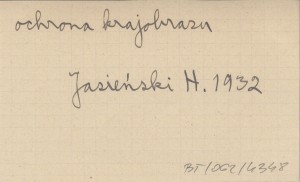 ochrona krajobrazu
Jasieński H. 1932
BT/OG2/4348